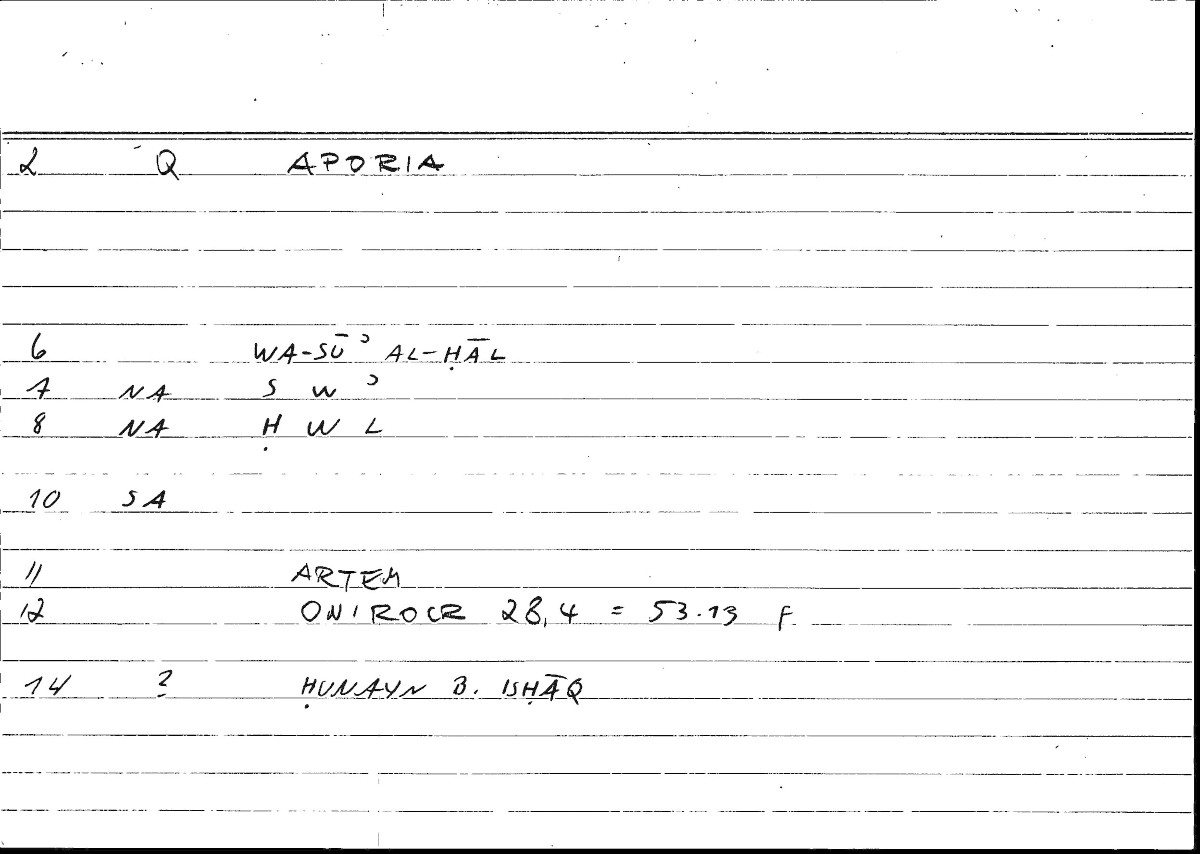 2 Q APORIA
6 WA-SŪʾ AL-ḤĀL
7 NA S W ʾ
8 NA Ḥ W L
10 SA
11 ARTEM
12 ONIROCR 28,4 = 53.13 f
14 ? ḤUNAYN B. ISḤĀQ